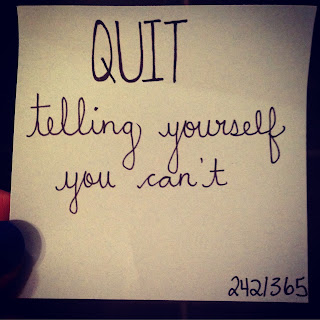 QUIT
telling yourself
you can't
242/365